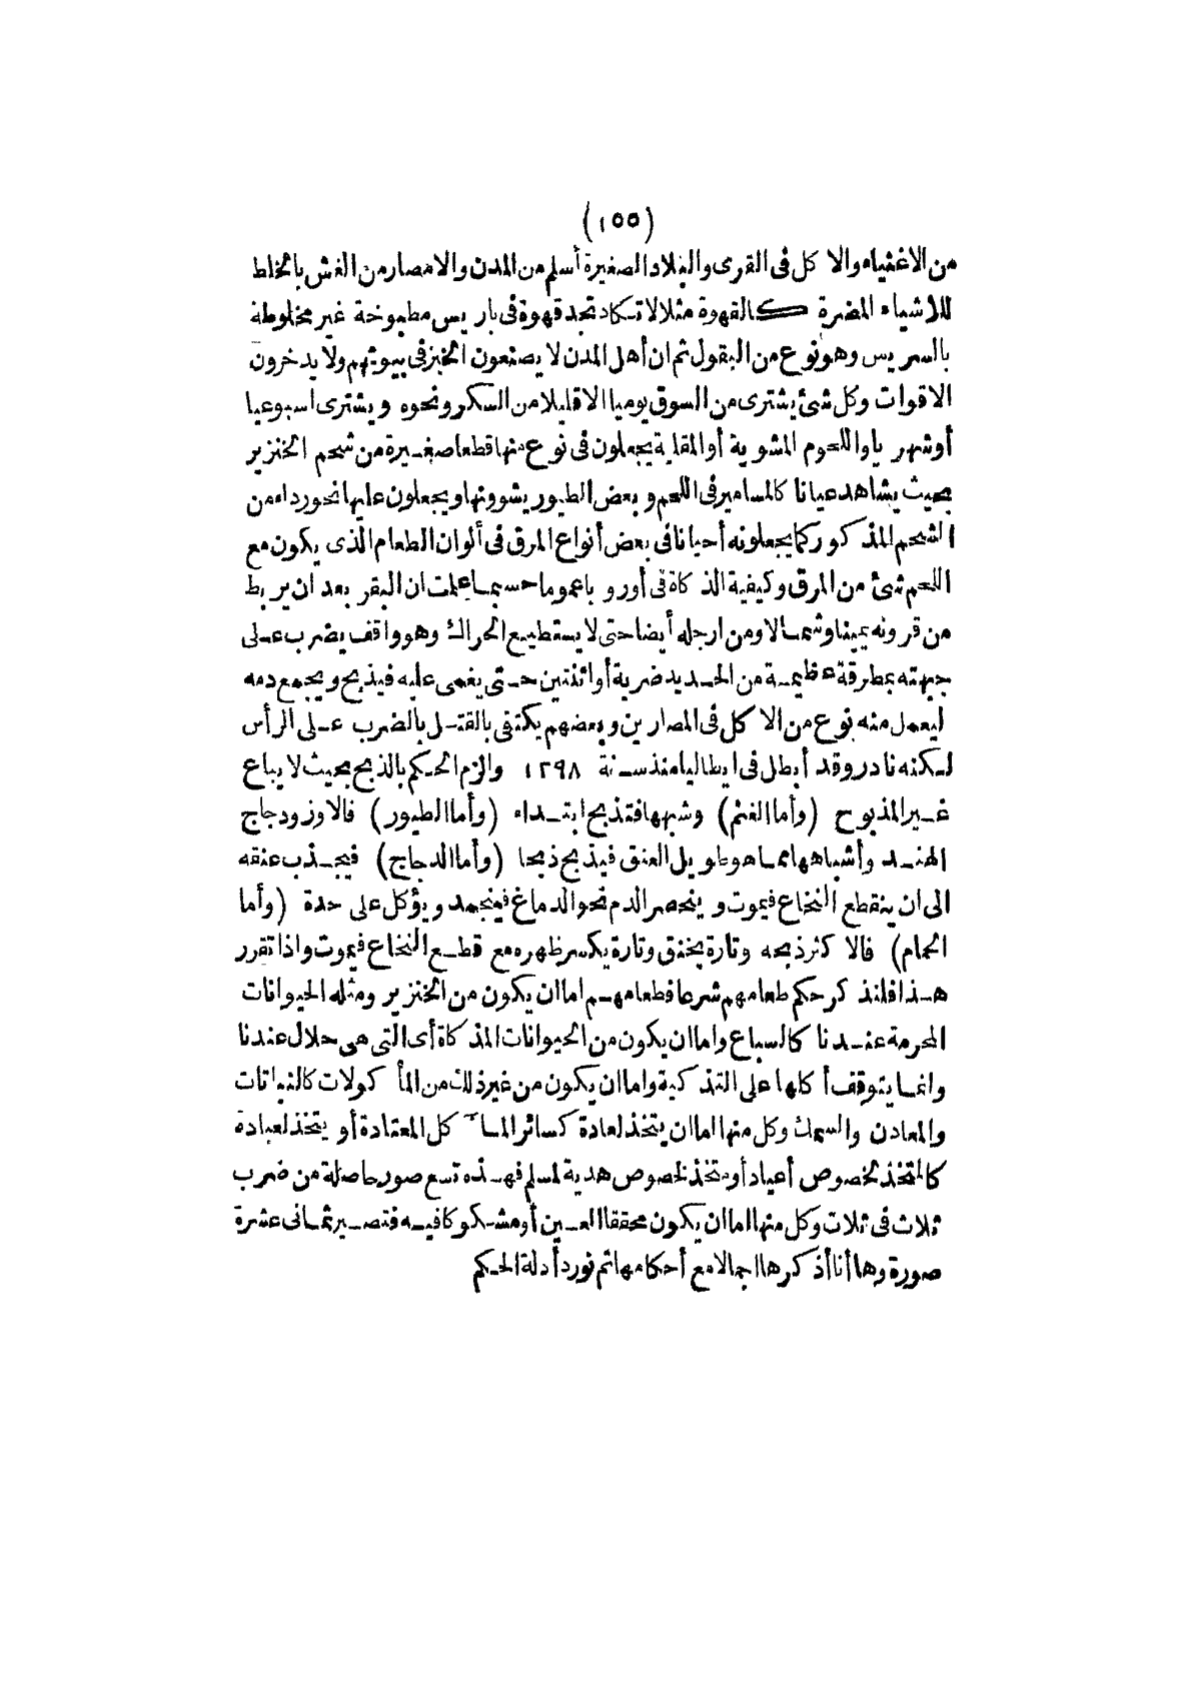 (١٥٥)
من الاغنياء والاكل فى القرى والبلاد الصغيرة أسلم من المدن والامصار من الغش بالخلط
للاشياء المضرة كالقهوة مثلا لا تكاد تجد قهوة فى باريس مطبوخة غير مخلوطة
بالسريس وهو نوع من البقول ثم ان أهل المدن لا يصنعون الخبز فى بيوتهم ولا يدخرون
الاقوات وكل شئ يشترى من السوق يوميا الا قليلا من السكر ونحوه ويشترى اسبوعيا
أو شهريا واللحوم المشوية أو المقلية يجعلون فى نوع منها قطعا صغيرة من شحم الخنزير
بحيث يشاهد عيانا كالمسامير فى اللحم وبعض الطيور يشوونها ويجعلون عليها نحو رداء من
الشحم المذكور كما يجعلونه أحيانا فى بعض أنواع المرق فى ألوان الطعام الذى يكون مع
اللحم شئ من المرق وكيفية الذكاة فى أوروبا عموما حسبما علمت ان البقر بعد ان يربط
من قرونه يمينا وشمالا ومن ارجله أيضا حتى لا يستطيع الحراك وهو واقف يضرب على
جبهته بمطرقة عظيمة من الحديد ضربة أو اثنتين حتى يغمى عليه فيذبح ويجمع دمه
ليعمل منه نوع من الاكل فى المصارين وبعضهم يكتفى بالقتل بالضرب على الرأس
لكنه نادر وقد أبطل فى ايطاليا منذ سنة ١٢٩٨ والزم الحكم بالذبح بحيث لا يباع
غير المذبوح (وأما الغنم) وشبهها فتذبح ابتداء (وأما الطيور) فالاوز ودجاج
الهند وأشباهها مما هو طويل العنق فيذبح ذبحا (وأما الدجاج) فيجذب عنقه
الى ان ينقطع النخاع فيموت وينحصر الدم نحو الدماغ فينجمد ويؤكل على حدة (وأما
الحمام) فالاكثر ذبحه وتارة يخنق وتارة يكسر ظهره مع قطع النخاع فيموت واذا تقرر
هذا فلنذكر حكم طعامهم شرعا فطعامهم اما ان يكون من الخنزير ومثله الحيوانات
المحرمة عندنا كالسباع واما ان يكون من الحيوانات المذكاة أى التى هى حلال عندنا
وانما يتوقف أكلها على التذكية واما ان يكون من غير ذلك من المأكولات كالنباتات
والمعادن والسمك وكل منها اما ان يتخذ لعادة كسائر المآكل المعتادة أو يتخذ لعبادة
كالمتخذ لخصوص أعياد أو متخذ لخصوص هدية لمسلم فهذه تسع صور حاصلة من ضرب
ثلاث فى ثلاث وكل منها اما ان يكون محققا العين أو مشكوكا فيه فتصير ثمانى عشرة
صورة وها أنا أذكرها اجمالا مع أحكامها ثم نورد أدلة الحكم